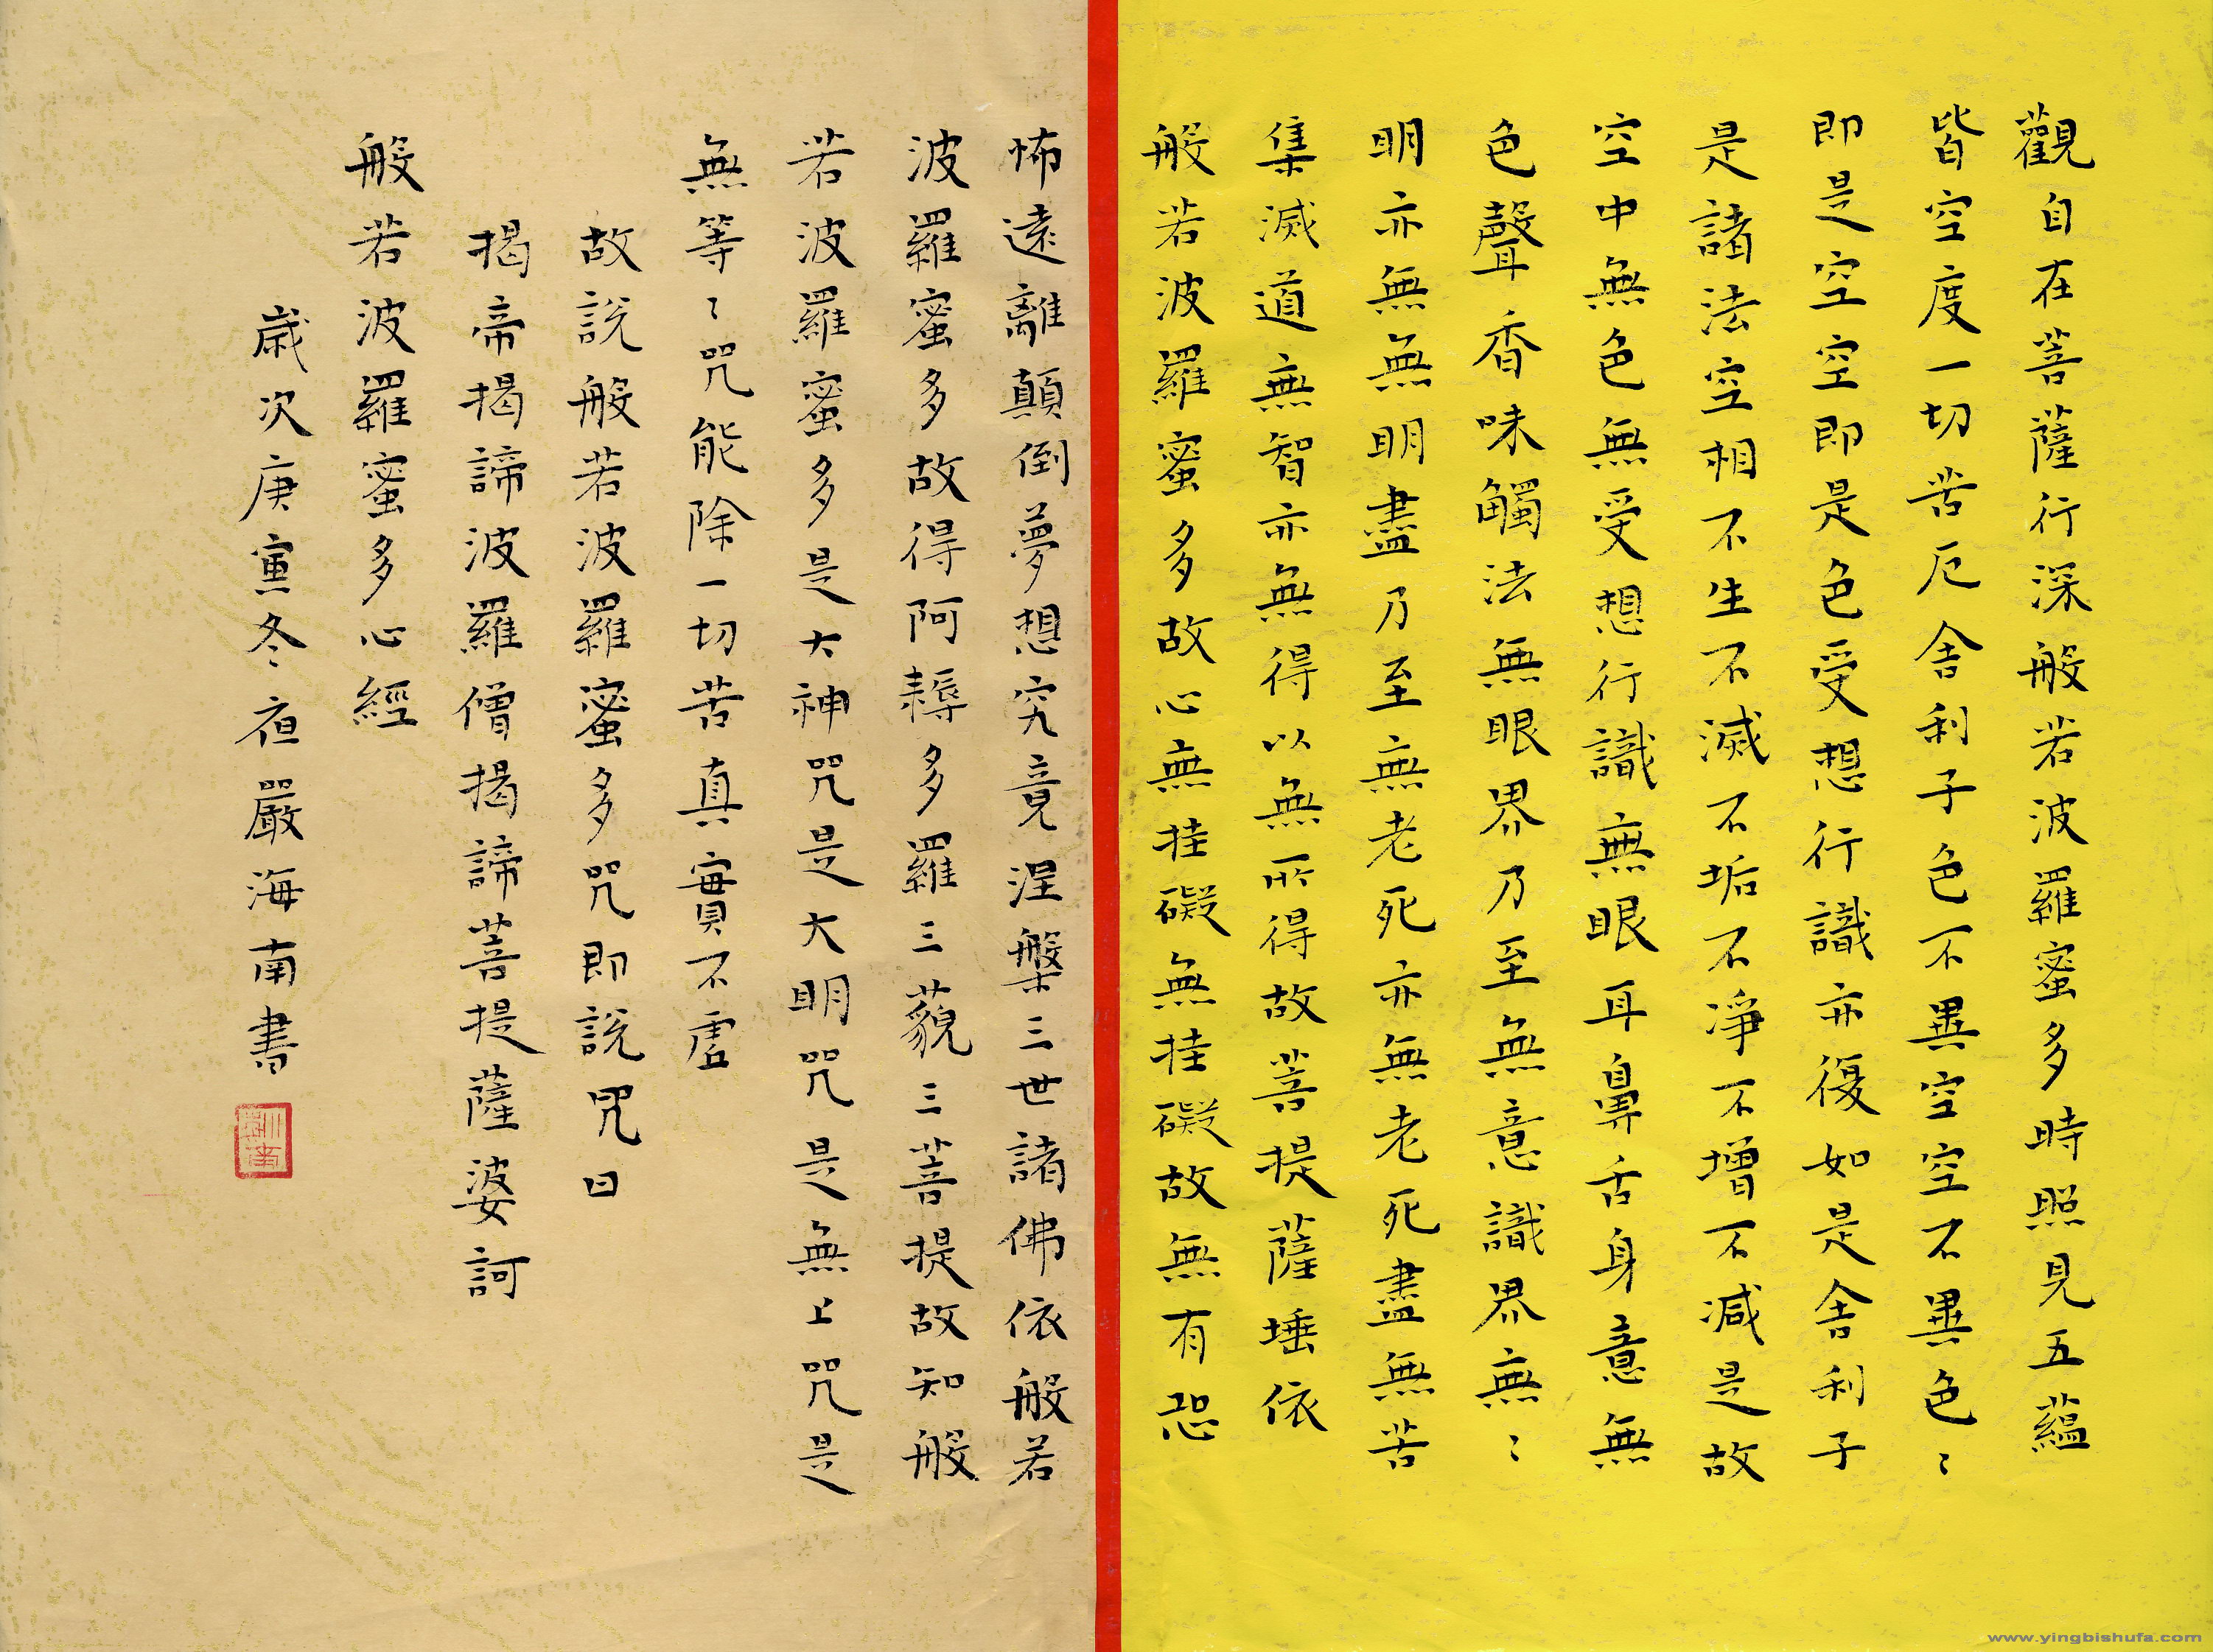 觀自在菩薩行深般若波羅蜜多時照見五蘊
皆空度一切苦厄舍利子色不異空空不異色〻
即是空空即是色受想行識亦復如是舍利子
是諸法空相不生不滅不垢不淨不增不減是故
空中無色無受想行識無眼耳鼻舌身意無
色聲香味觸法無眼界乃至無意識界無〻
明亦無無明盡乃至無老死亦無老死盡無苦
集滅道無智亦無得以無所得故菩提薩埵依
般若波羅蜜多故心無挂礙無挂礙故無有恐
怖遠離顛倒夢想究竟涅槃三世諸佛依般若
波羅蜜多故得阿耨多羅三藐三菩提故知般
若波羅蜜多是大神咒是大明咒是無上咒是
無等〻咒能除一切苦真實不虛
故說般若波羅蜜多咒即說咒曰
揭帝揭諦波羅僧揭諦菩提薩婆訶
般若波羅蜜多心經
歲次庚寅冬夜嚴海南書
www.yingbishufa.com